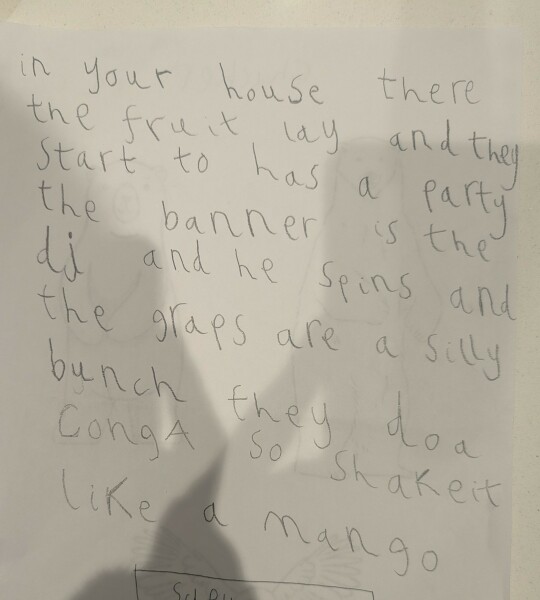 in your house there
the fruit lay and they
start to has a party
the banner is the
dj and he spins and
the graps are a silly
bunch they do a
CongA so shakeit
like a mango